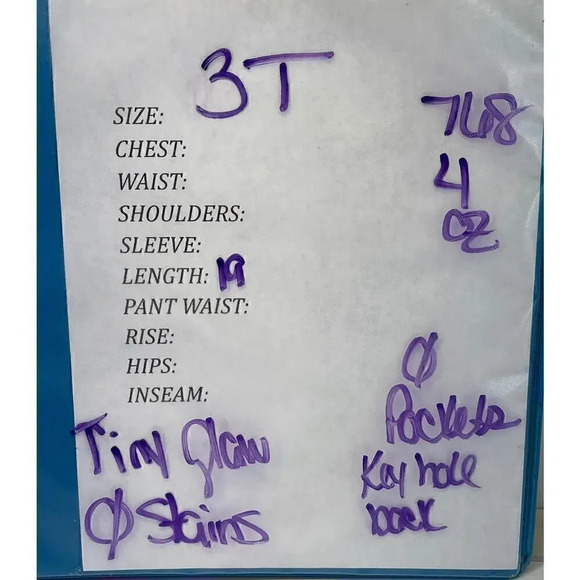 SIZE: 3T
CHEST:
WAIST:
SHOULDERS:
SLEEVE:
LENGTH: 19
PANT WAIST:
RISE:
HIPS:
INSEAM:
4
OZ
Ø
Pockets
Key hole
back
Tiny
Ø Stains